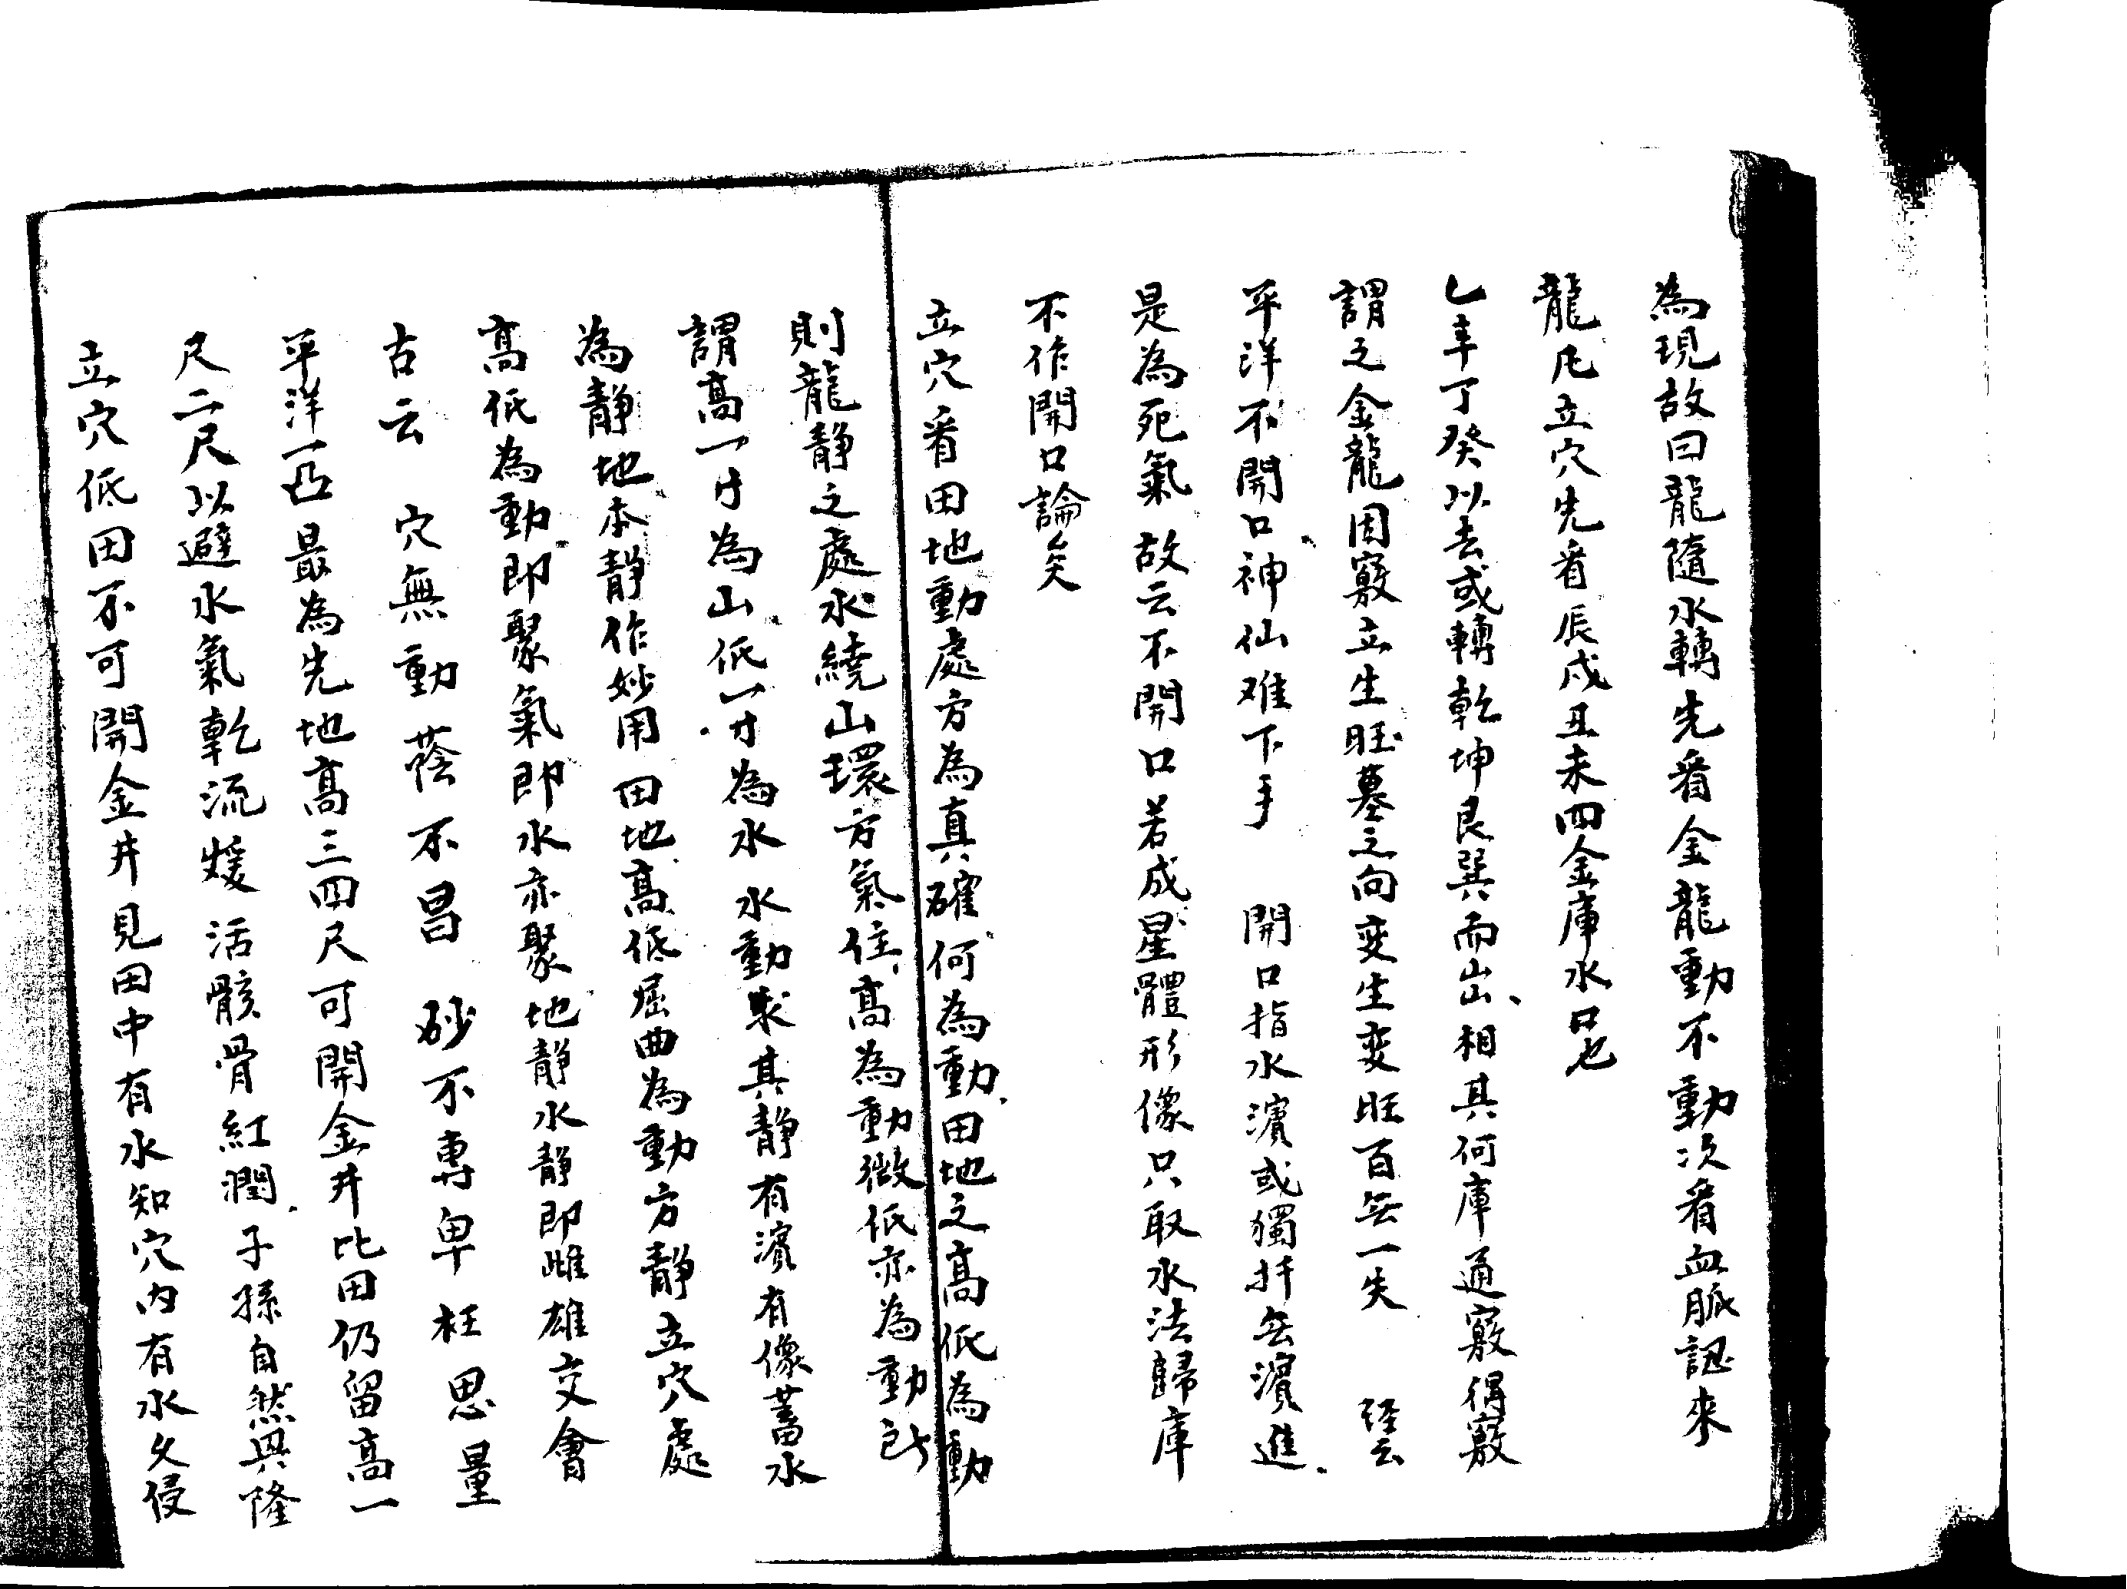 為現故曰龍隨水轉先看金龍動不動次看血脈認來
龍凡立穴先看辰戌丑未四金庫水口也
乙辛丁癸以去或轉乾坤艮巽而出相其何庫通竅得竅
謂之金龍因竅立生旺墓之向变生变旺百無一失 経云
平洋不開口神仙难下手 開口指水濱或獨扦無濱進
是為死氣故云不開口若成星體形像只取水法歸庫
不作開口論矣
立穴看田地動處方為真確何為動田地之高低為動
則龍静之處水繞山環方氣住高為動微低亦為動所
謂高一寸為山低一寸為水水動求其静有濱有像蓄水
為静地本静作妙用田地高低屈曲為動方静立穴處
高低為動即聚氣即水亦聚地静水静即雌雄交會
古云 穴無動蔭不昌 砂不專卑枉思量
平洋一凸最為先地高三四尺可開金井比田仍留高一
尺二尺以避水氣乾流煖活骸骨紅潤子孫自然興隆
立穴低田不可開金井見田中有水知穴内有水久侵